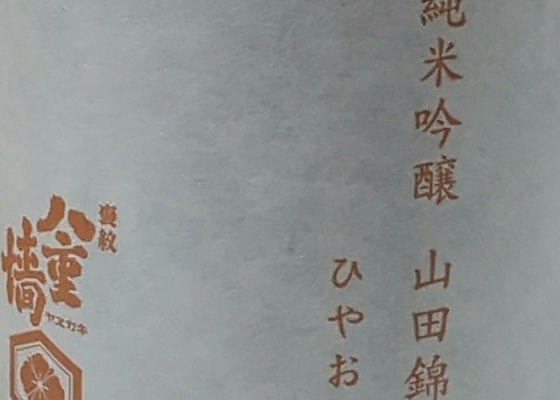 純米吟醸 山田錦
ひやお
登録
八重墻
ヤヱガキ